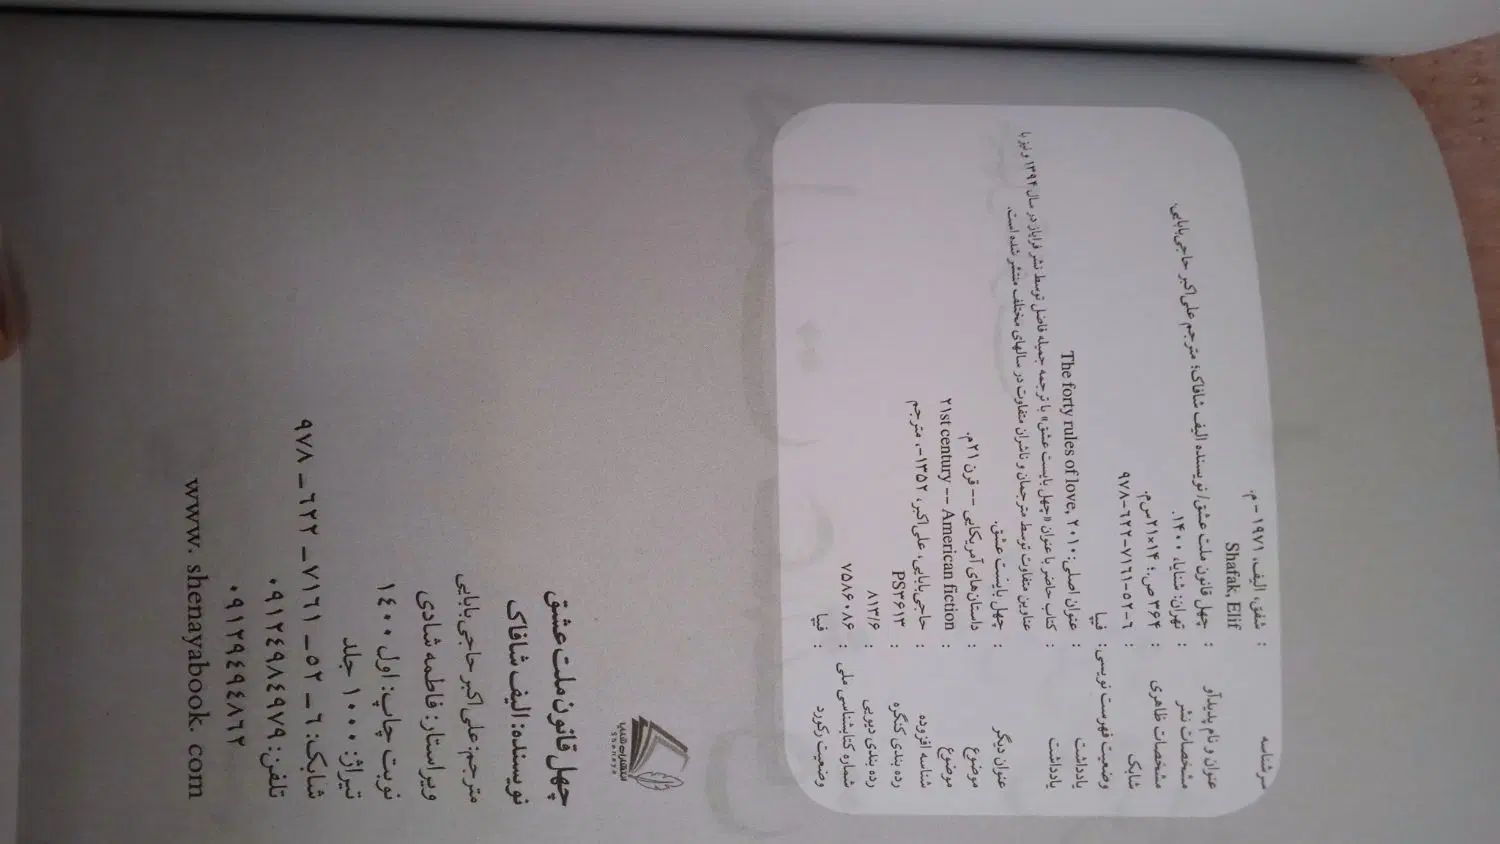 سرشناسه : شفق، الیف، ۱۹۷۱ - م.
Shafak, Elif
عنوان و نام پدیدآو : چهل قانون ملت عشق/ نویسنده الیف شافاک؛ مترجم علی‌اکبر حاجی‌بابایی.
مشخصات نشر : تهران: شنایا، ۱۴۰۰.
مشخصات ظاهری : ۳۶۴ ص.؛ ۱۴×۲۱س‌م.
شابک : ۹۷۸-۶۲۲-۷۱۶۱-۵۲-۶
وضعیت فهرست نویسی : فیپا
یادداشت : عنوان اصلی: The forty rules of love, ۲۰۱۰
یادداشت : کتاب حاضر با عنوان «چهل بایست عشق» با ترجمه جمیله فاضل توسط نشر فراباز در سال ۱۳۹۴ و نیز با
عناوین متفاوت توسط مترجمان و ناشران متفاوت در سالهای مختلف منتشر شده است.
عنوان دیگر : چهل بایست عشق.
موضوع : داستان‌های آمریکایی -- قرن ۲۱م.
موضوع : ۲۱st century -- American fiction
شناسه افزوده : حاجی‌بابایی، علی‌اکبر، ۱۳۵۲-، مترجم
رده بندی کنگره : PS۳۶۱۳
رده بندی دیویی : ۸۱۳/۶
شماره کتابشناسی ملی : ۷۵۸۶۰۸۶
وضعیت رکورد : فیپا
انتشارات شنایا
Shenaya
چهل قانون ملت عشق
نویسنده: الیف شافاک
مترجم: علی‌اکبر حاجی‌بابایی
ویراستار: فاطمه شادی
نوبت چاپ: اول ۱۴۰۰
تیراژ: ۱۰۰۰ جلد
شابک: ۶ – ۵۲ – ۷۱۶۱ – ۶۲۲ – ۹۷۸
تلفن: ۰۹۱۲۴۹۸۴۹۷۹
۰۹۱۲۹۴۹۴۸۶۲
www. shenayabook. com